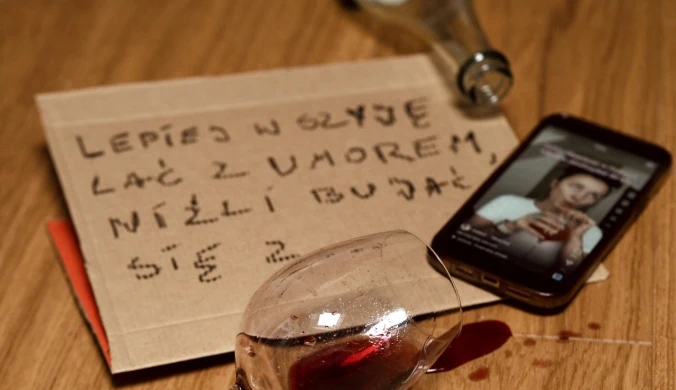 LEPIEJ W SZYJĘ
LAĆ Z UMOREM,
NIŹLI BUJAĆ
SIĘ Z